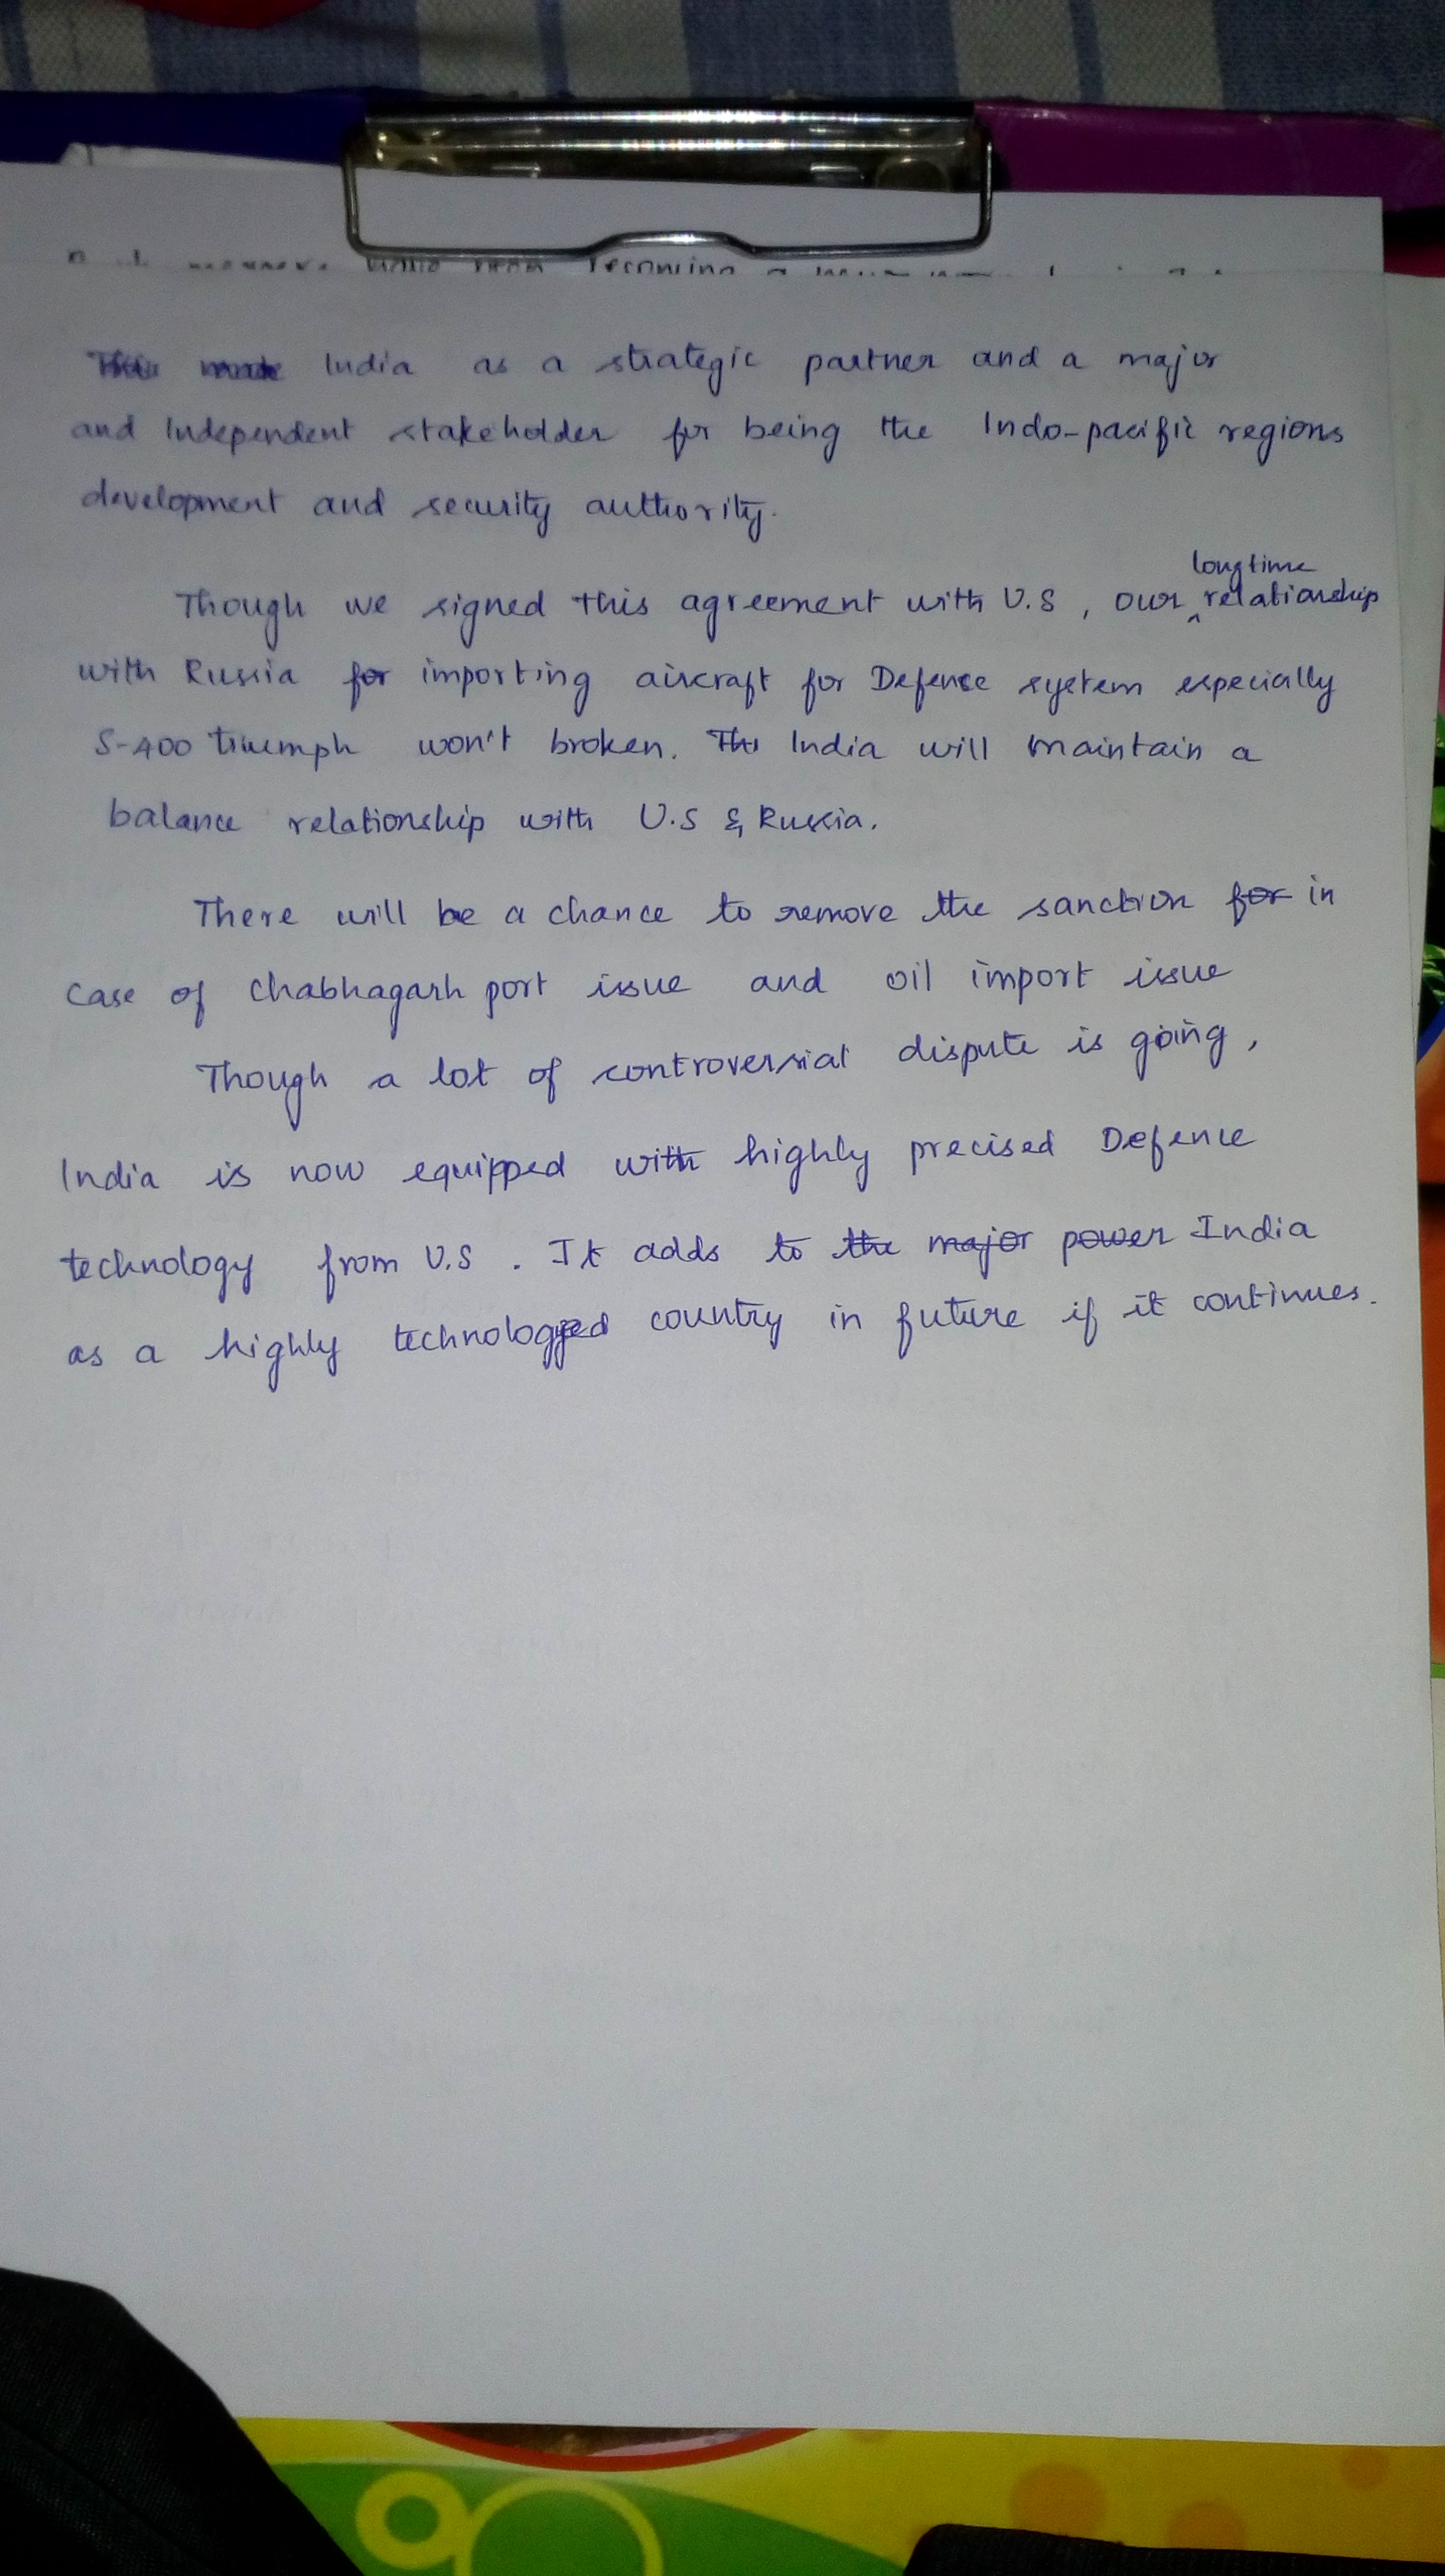 India as a strategic partner and a major
and Independent stakeholder for being the Indo-pacific regions
development and security authority.
Though we signed this agreement with U.S, our longtime relationship
with Russia for importing aircraft for Defense system especially
S-400 triumph won't broken. The India will maintain a
balance relationship with U.S & Russia.
There will be a chance to remove the sanction for in
case of Chabhagarh port issue and oil import issue
Though a lot of controversial dispute is going,
India is now equipped with highly precised Defence
technology from U.S. It adds to the major power India
as a highly technologyed country in future if it continues.